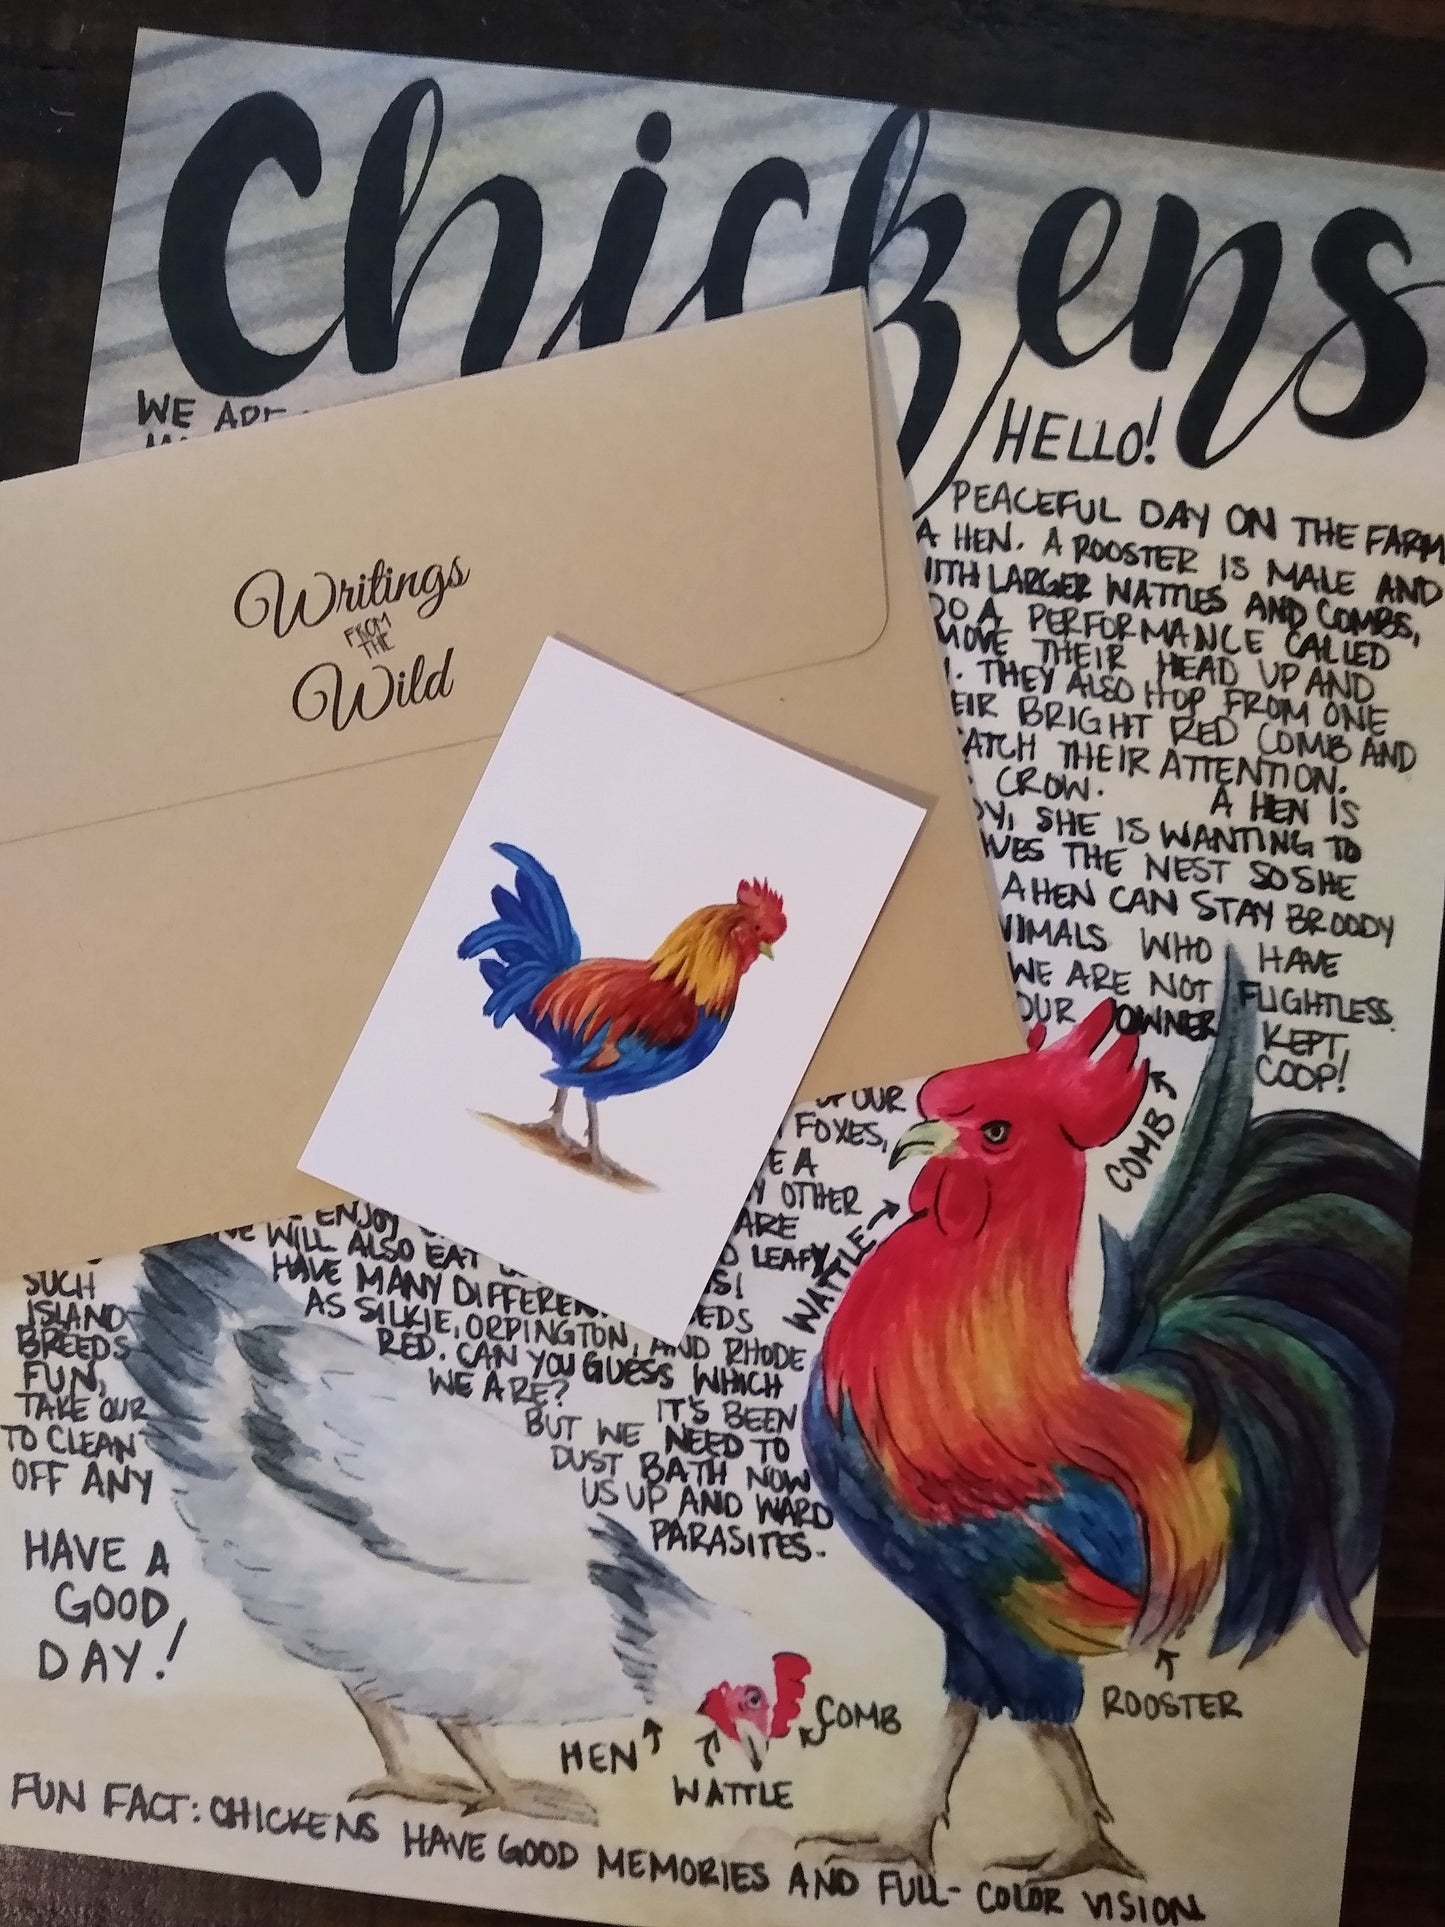 Chickens
WE ARE
HELLO!
PEACEFUL DAY ON THE FARM
A HEN. A ROOSTER IS MALE AND
WITH LARGER WATTLES AND COMBS,
DO A PERFORMANCE CALLED
MOVE THEIR HEAD UP AND
THEY ALSO HOP FROM ONE
EIR BRIGHT RED COMB AND
ATCH THEIR ATTENTION.
CROW. A HEN IS
SHE IS WANTING TO
THE NEST SO SHE
A HEN CAN STAY BROODY
NIMALS WHO HAVE
WE ARE NOT FLIGHTLESS.
OUR OWNER KEPT
COOP!
Writings
FROM
THE
Wild
OUR
FOXES,
E A
OTHER
ARE
LEAFY
COMB
WATTLE
ENJOY
WE WILL ALSO EAT
HAVE MANY DIFFEREN EDS
AS SILKIE, ORPINGTON, AND RHODE
RED. CAN YOU GUESS WHICH
WE ARE?
IT'S BEEN
BUT WE NEED TO
DUST BATH NOW
US UP AND WARD
PARASITES.
SUCH
ISLAND
BREEDS
FUN,
TAKE OUR
TO CLEAN
OFF ANY
HAVE A
GOOD
DAY!
ROOSTER
COMB
HEN
WATTLE
FUN FACT: CHICKENS HAVE GOOD MEMORIES AND FULL-COLOR VISION